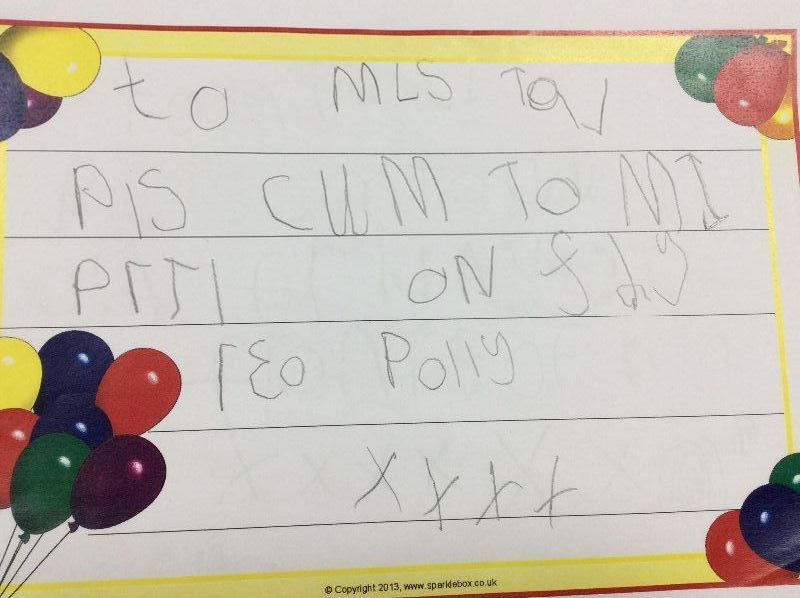 to MLS
PlS CUM TO MI
PITTI ON
Polly
X x x x
© Copyright 2013, www.sparklebox.co.uk